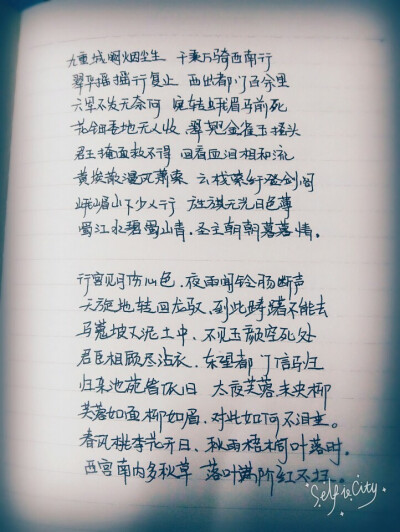 九重城阙烟尘生 千乘万骑西南行
翠华摇摇行复止 西出都门百余里
六军不发无奈何 宛转蛾眉马前死
花钿委地无人收,翠翘金雀玉搔头
君王掩面救不得 回看血泪相和流
黄埃散漫风萧索 云栈萦纡登剑阁
峨嵋山下少人行 旌旗无光日色薄
蜀江水碧蜀山青,圣主朝朝暮暮情。
行宫见月伤心色,夜雨闻铃肠断声
天旋地转回龙驭,到此踌躇不能去
马嵬坡下泥土中,不见玉颜空死处
君臣相顾尽沾衣,东望都门信马归
归来池苑皆依旧 太夜芙蓉未央柳
芙蓉如面柳如眉,对此如何不泪垂。
春风桃李花开日,秋雨梧桐叶落时。
西宫南内多秋草 落叶满阶红不扫。
SelfieCity